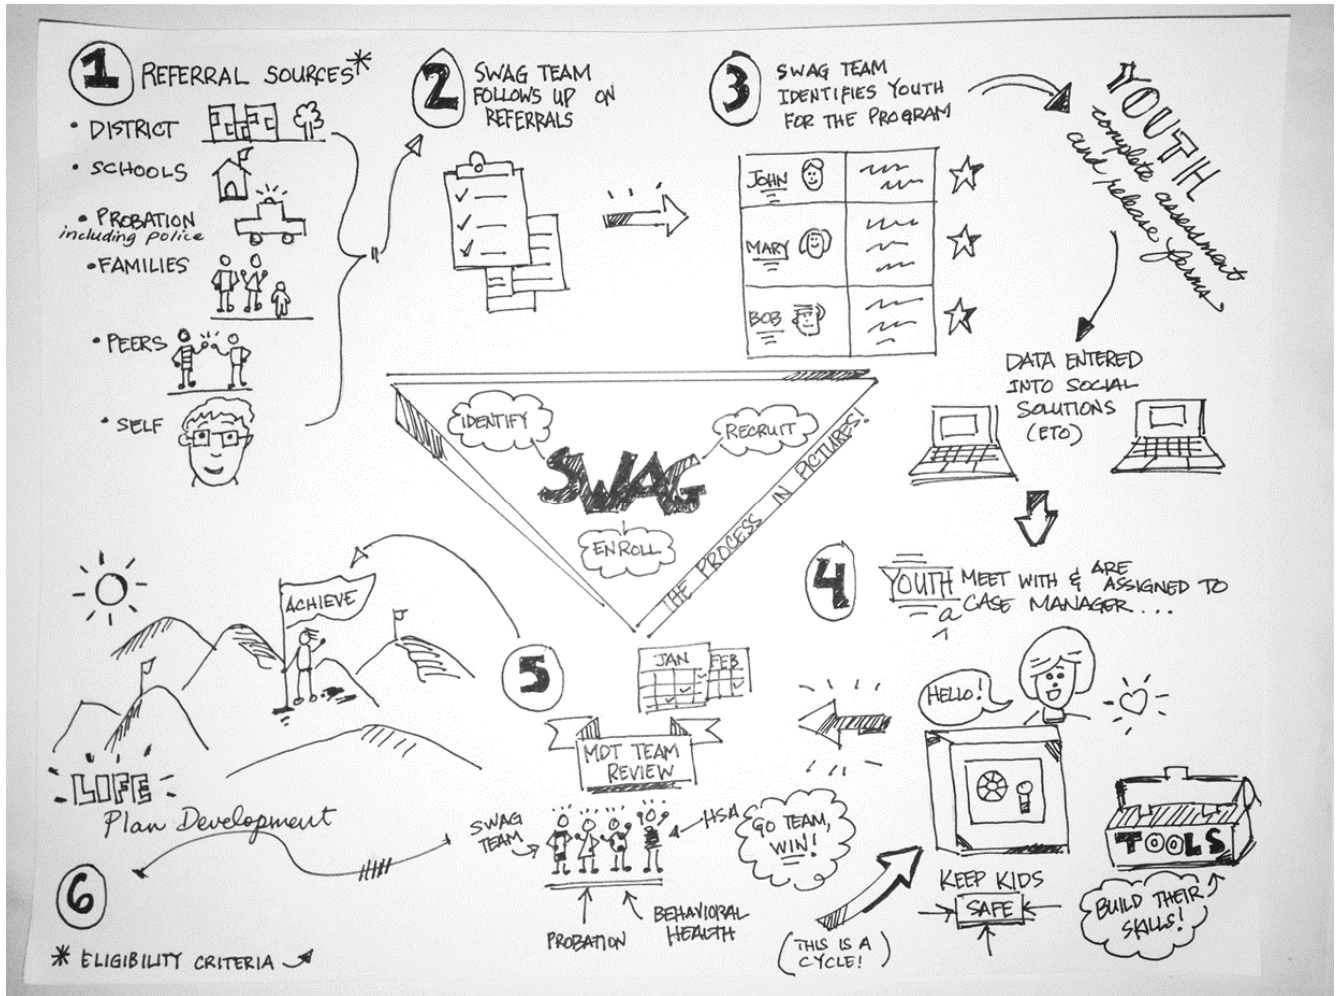 1 REFERRAL SOURCES*
• DISTRICT
• SCHOOLS
• PROBATION
including police
• FAMILIES
• PEERS
• SELF
2 SWAG TEAM
FOLLOWS UP ON
REFERRALS
3 SWAG TEAM
IDENTIFIES YOUTH
FOR THE PROGRAM
JOHN
MARY
BOB
YOUTH
complete assessment
and release forms
DATA ENTERED
INTO SOCIAL
SOLUTIONS
(ETO)
IDENTIFY
RECRUIT
SWAG
ENROLL
THE PROCESS IN PICTURES!
4 YOUTH MEET WITH & ARE
ASSIGNED TO
a CASE MANAGER...
HELLO!
TOOLS
KEEP KIDS
SAFE
BUILD THEIR
SKILLS!
5
JAN FEB
MDT TEAM
REVIEW
SWAG
TEAM
HSA
PROBATION
BEHAVIORAL
HEALTH
GO TEAM,
WIN!
(THIS IS A
CYCLE!)
ACHIEVE
LIFE
Plan Development
6
* ELIGIBILITY CRITERIA